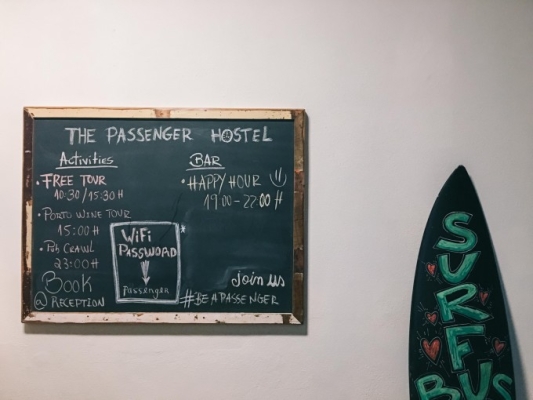 THE PASSENGER HOSTEL
Activities
• FREE TOUR
10:30/15:30 H
• PORTO WINE TOUR
15:00 H
• Pub CRAWL
23:00 H
Book
@ RECEPTION
WiFi
PASSWORD
Passenger
*
BAR
• HAPPY HOUR
19:00-22:00 H
join us
#BE A PASSENGER
SURF
BUS